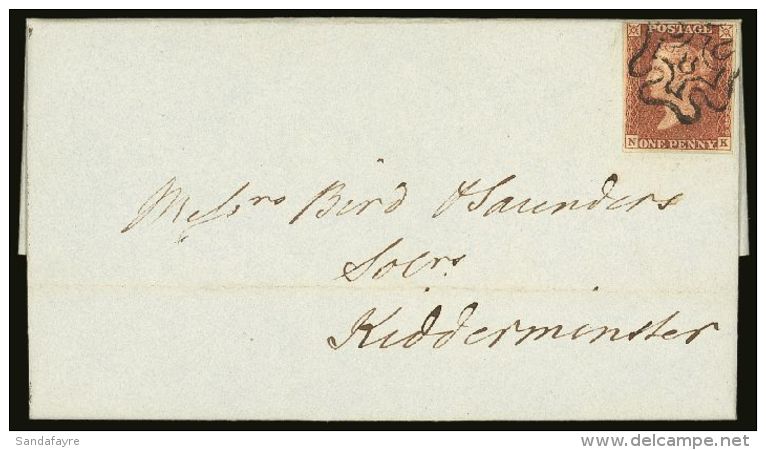 POSTAGE
N ONE PENNY K
Messrs Bird & Saunders
Solrs
Kidderminster
Sandafayre
www.delcampe.net